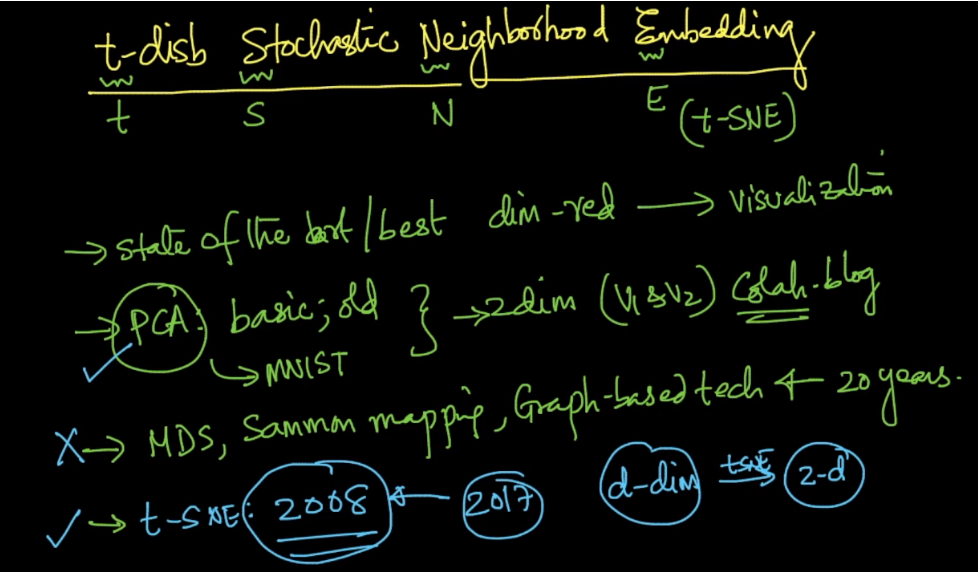 t-disb Stochastic Neighborhood Embedding
t S N E (t-SNE)
→ state of the art / best dim-red → visualization
→ PCA: basic; old } → 2dim (V1 & V2) Colah-blog
↳ MNIST
X → MDS, Sammon mapping, Graph-based tech ← 20 years.
✓ → t-SNE: 2008 ← 2017 d-dim tSNE → 2-d